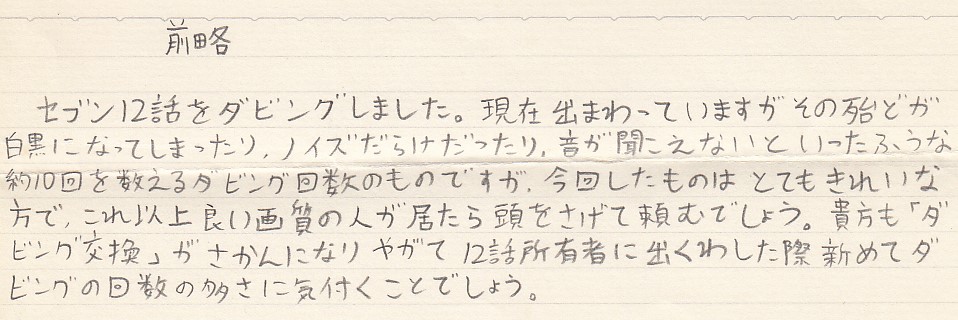 前略
セブン12話をダビングしました。現在出まわっていますがその殆どが
白黒になってしまったり,ノイズだらけだったり,音が聞こえないといったふうな
約10回を数えるダビング回数のものですが,今回したものはとてもきれいな
方で,これ以上良い画質の人が居たら頭をさげて頼むでしょう。貴方も「ダ
ビング交換」がさかんになりやがて12話所有者に出くわした際新めてダ
ビングの回数の多さに気付くことでしょう。